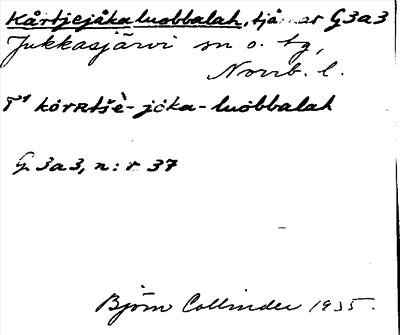 Kårtjejåkaluobbalah, tjärnar G3a3
Jukkasjärvi sn o. tg,
Norrb. l.
kórrtšè-jóka-luobbalah
G 3a3, n:r 37
Björn Collinder 1935.